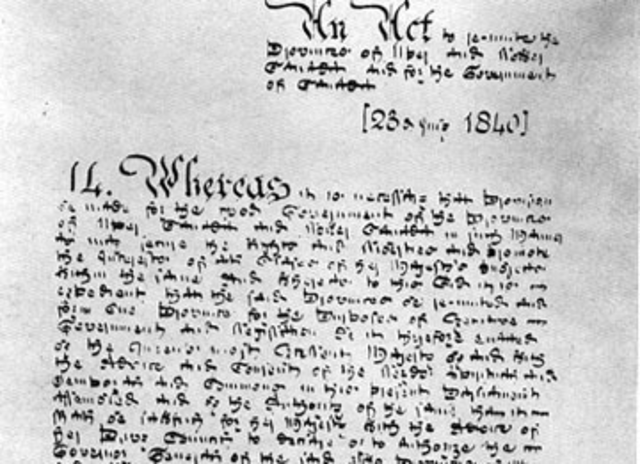 An Act to re-unite the
Provinces of Upper and Lower
Canada and for the Government
of Canada
[23d July 1840]
14. Whereas it is necessary that Provision
be made for the good Government of the Provinces
of Upper Canada and Lower Canada in such Manner
as may secure the Rights and Liberties and promote
the Interests of all Classes of Her Majesty's Subjects
within the same And Whereas to this End it is
expedient that the said Provinces be re-united and
form One Province for the Purposes of Executive
Government and Legislation Be it therefore enacted
by the Queen's most Excellent Majesty by and with
the Advice and Consent of the Lords Spiritual and
Temporal and Commons in this present Parliament
Assembled and by the Authority of the same that it
shall be lawful for Her Majesty with the Advice of
Her Privy Council to declare or to Authorize the
Governor General of the said